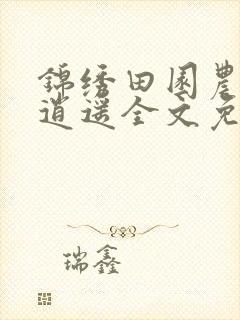 锦绣田园农
逍遥全文免
瑞鑫